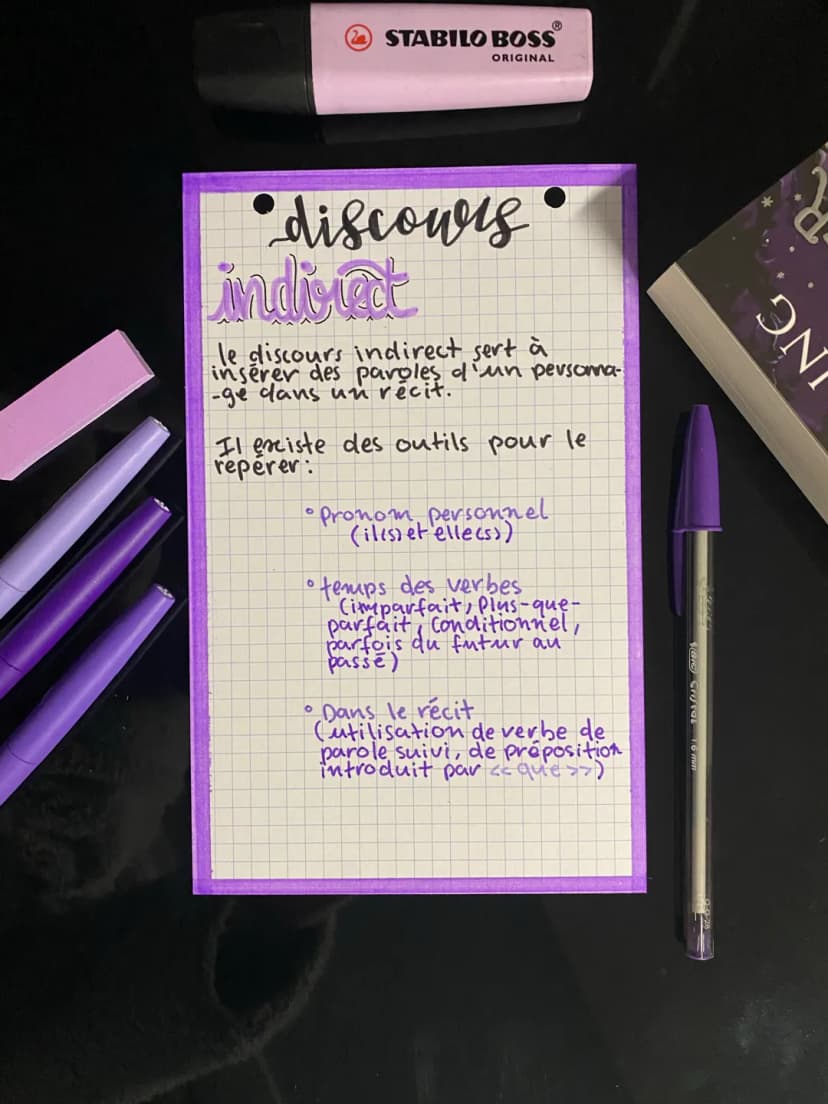 STABILO BOSS®
ORIGINAL
discours
indirect
le discours indirect sert à
insérer des paroles d'un personna-
-ge dans un récit.
Il existe des outils pour le
repérer :
° Pronom personnel
(il(s) et elle(s))
° temps des verbes
(imparfait, plus-que-
parfait, conditionnel,
parfois du futur au
passé)
° Dans le récit
(utilisation de verbe de
parole suivi, de préposition
introduit par << que >>)
R
ING
Cristal 1.6 mm